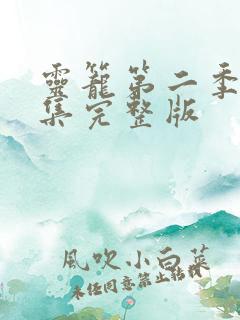 靈籠第二季
集完整版
風吹小白菜
未经同意禁止转载